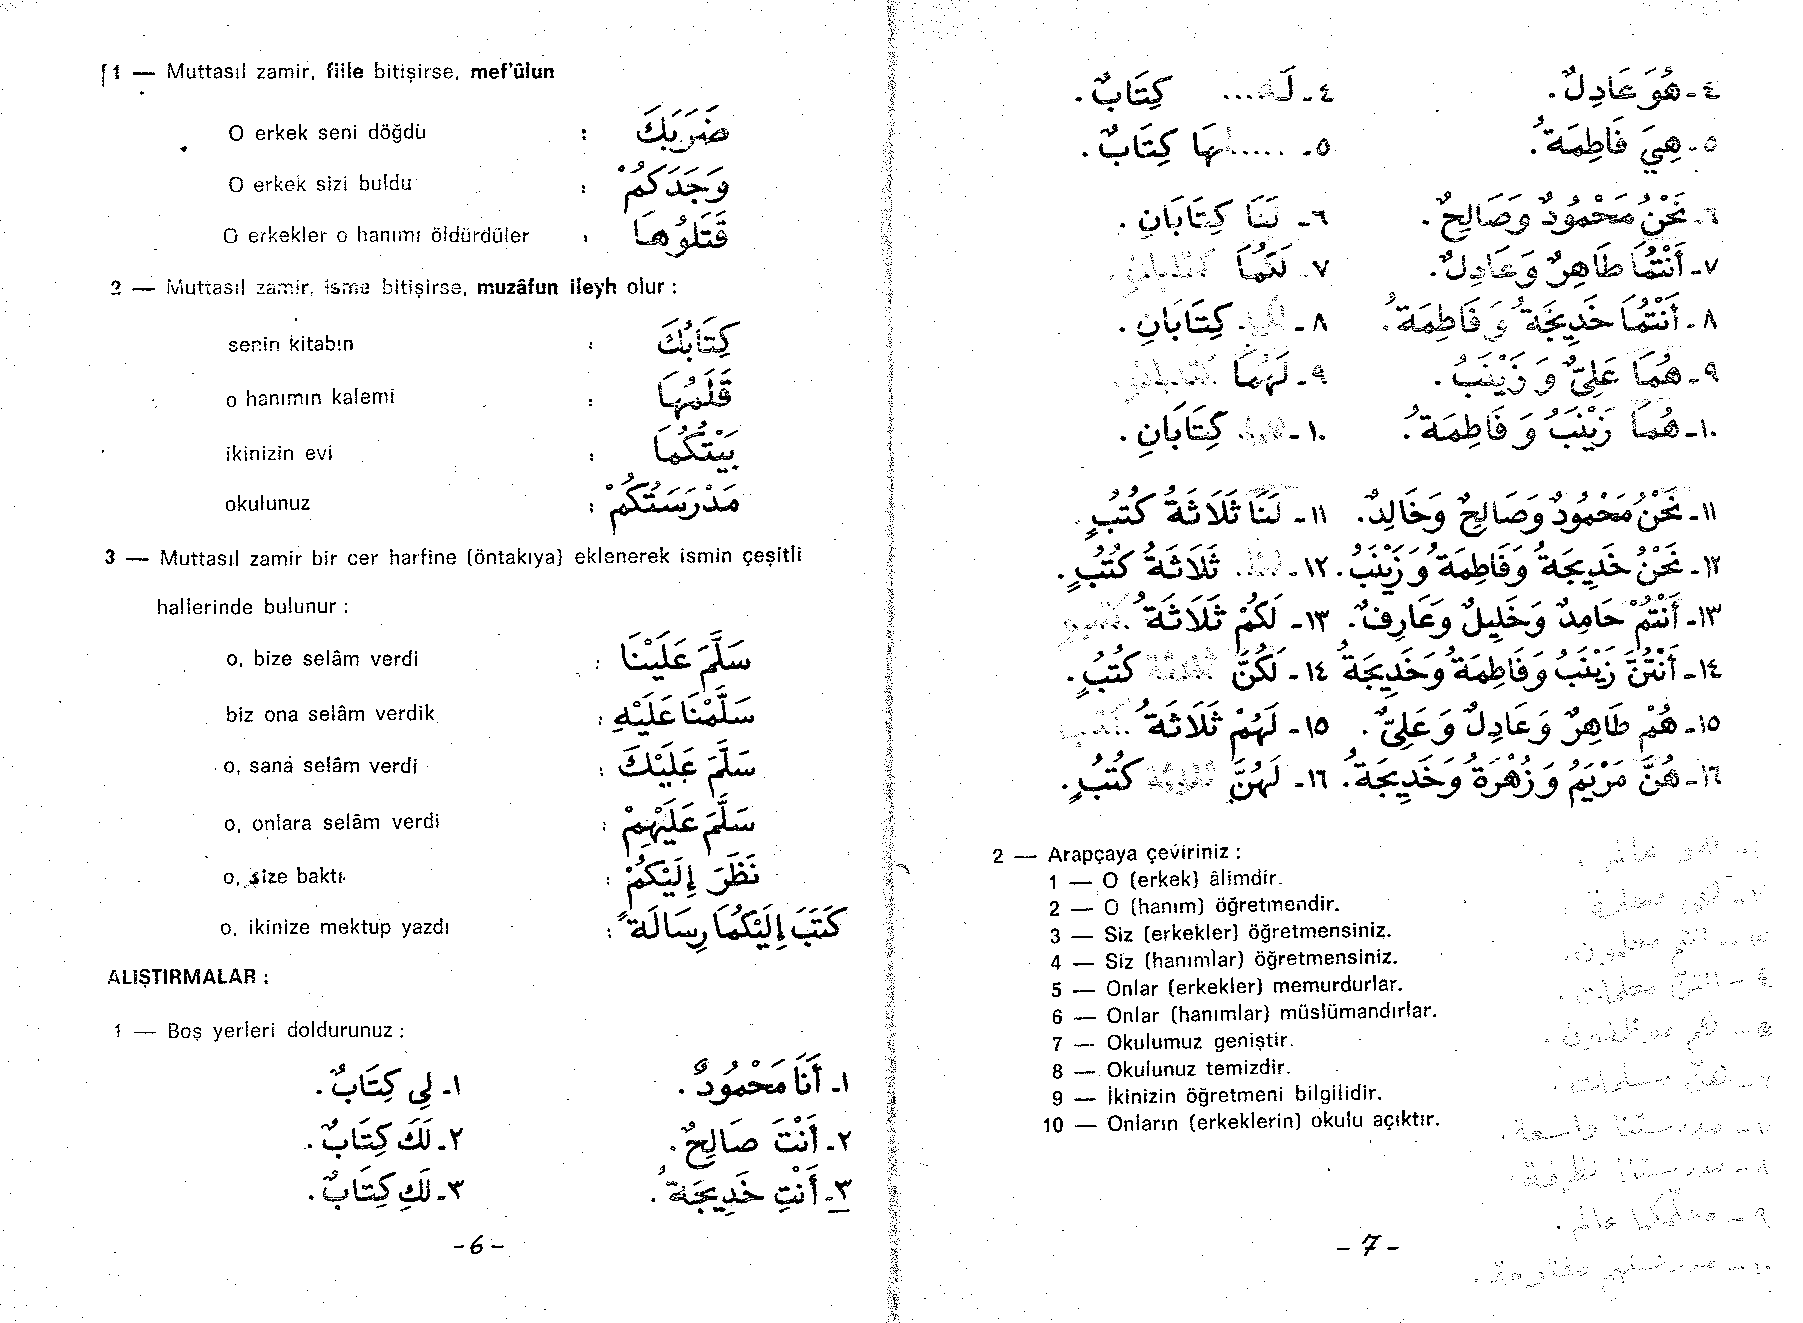 1 — Muttasıl zamir, fiile bitişirse, mef'ûlun
O erkek seni döğdü : ضَرَبَكَ
O erkek sizi buldu : وَجَدَكُمْ
O erkekler o hanımı öldürdüler : قَتَلُوهَا
2 — Muttasıl zamir, isme bitişirse, muzâfun ileyh olur :
senin kitabın : كِتَابُكَ
o hanımın kalemi : قَلَمُهَا
ikinizin evi : بَيْتُكُمَا
okulunuz : مَدْرَسَتُكُمْ
3 — Muttasıl zamir bir cer harfine (öntakıya) eklenerek ismin çeşitli
hallerinde bulunur :
o, bize selâm verdi : سَلَّمَ عَلَيْنَا
biz ona selâm verdik : سَلَّمْنَا عَلَيْهِ
o, sana selâm verdi : سَلَّمَ عَلَيْكَ
o, onlara selâm verdi : سَلَّمَ عَلَيْهِمْ
o, size baktı : نَظَرَ إِلَيْكُمْ
o, ikinize mektup yazdı : كَتَبَ إِلَيْكُمَا رِسَالَةً
ALIŞTIRMALAR :
1 — Boş yerleri doldurunuz :
١- أَنَا مَحْمُودٌ . ١- لِي كِتَابٌ .
٢- أَنْتَ صَالِحٌ . ٢- لَكَ كِتَابٌ .
٣- أَنْتِ خَدِيجَةُ . ٣- لَكِ كِتَابٌ .
- 6 -
٤- هُوَ عَادِلٌ . ٤- لَهُ ... كِتَابٌ .
٥- هِيَ فَاطِمَةُ . ٥- ..... لَهَا كِتَابٌ .
٦- نَحْنُ مَحْمُودٌ وَصَالِحٌ . ٦- لَنَا كِتَابَانِ .
٧- أَنْتُمَا طَاهِرٌ وَعَادِلٌ . ٧- لَكُمَا كتابان .
٨- أَنْتُمَا خَدِيجَةُ وَ فَاطِمَةُ . ٨- كِتَابَانِ .
٩- هُمَا عَلِيٌّ وَ زَيْنَبُ . ٩- لَهُمَا كتابان .
١٠- هُمَا زَيْنَبُ وَ فَاطِمَةُ . ١٠- كِتَابَانِ .
١١- نَحْنُ مَحْمُودٌ وَصَالِحٌ وَخَالِدٌ . ١١- لَنَا ثَلَاثَةُ كُتُبٍ .
١٢- نَحْنُ خَدِيجَةُ وَفَاطِمَةُ وَ زَيْنَبُ . ١٢- ثَلَاثَةُ كُتُبٍ .
١٣- أَنْتُمْ حَامِدٌ وَخَلِيلٌ وَعَارِفٌ . ١٣- لَكُمْ ثَلَاثَةُ كتب
١٤- أَنْتُنَّ زَيْنَبُ وَفَاطِمَةُ وَخَدِيجَةُ ١٤- لَكُنَّ ثلاثة كُتُبٍ .
١٥- هُمْ طَاهِرٌ وَعَادِلٌ وَعَلِيٌّ . ١٥- لَهُمْ ثَلَاثَةُ كتب
١٦- هُنَّ مَرْيَمُ وَ زُهْرَةُ وَخَدِيجَةُ . ١٦- لَهُنَّ ثلاثة كُتُبٍ .
2 — Arapçaya çeviriniz :
1 — O (erkek) âlimdir.
2 — O (hanım) öğretmendir.
3 — Siz (erkekler) öğretmensiniz.
4 — Siz (hanımlar) öğretmensiniz.
5 — Onlar (erkekler) memurdurlar.
6 — Onlar (hanımlar) müslümandırlar.
7 — Okulumuz geniştir.
8 — Okulunuz temizdir.
9 — İkinizin öğretmeni bilgilidir.
10 — Onların (erkeklerin) okulu açıktır.
- 7 -